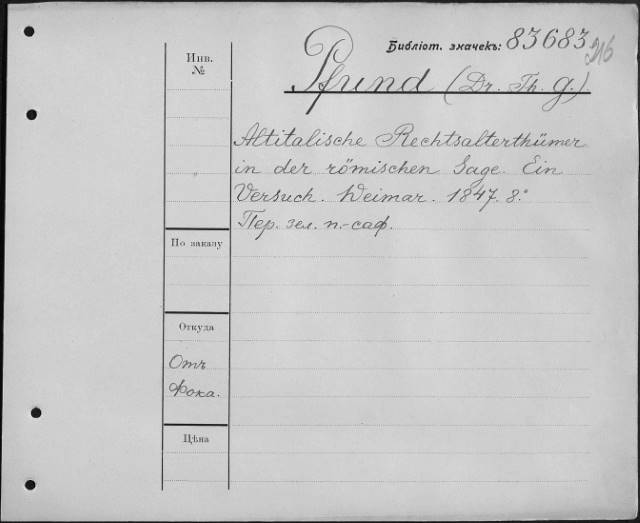 Библіот. значекъ: 83683
216
Инв.
№
Pfund (Dr. Th. G.)
Altitalische Rechtsalterthümer
in der römischen Sage. Ein
Versuch. Weimar. 1847. 8.°
Пер. зел. п.-саф.
По заказу
Откуда
Отъ
Фока.
Цѣна